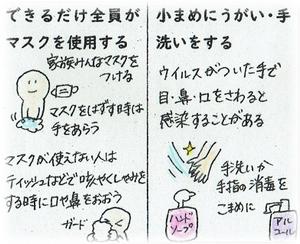 できるだけ全員が
マスクを使用する
家族みんなマスクを
つける
マスクをはずす時は
手をあらう
マスクが使えない人は
ティッシュなどで咳やくしゃみを
する時に口や鼻をおおう
ガード
小まめにうがい・手
洗いをする
ウイルスがついた手で
目・鼻・口をさわると
感染することがある
手洗いか
手指の消毒を
こまめに
ハンド
ソープ
アル
コール